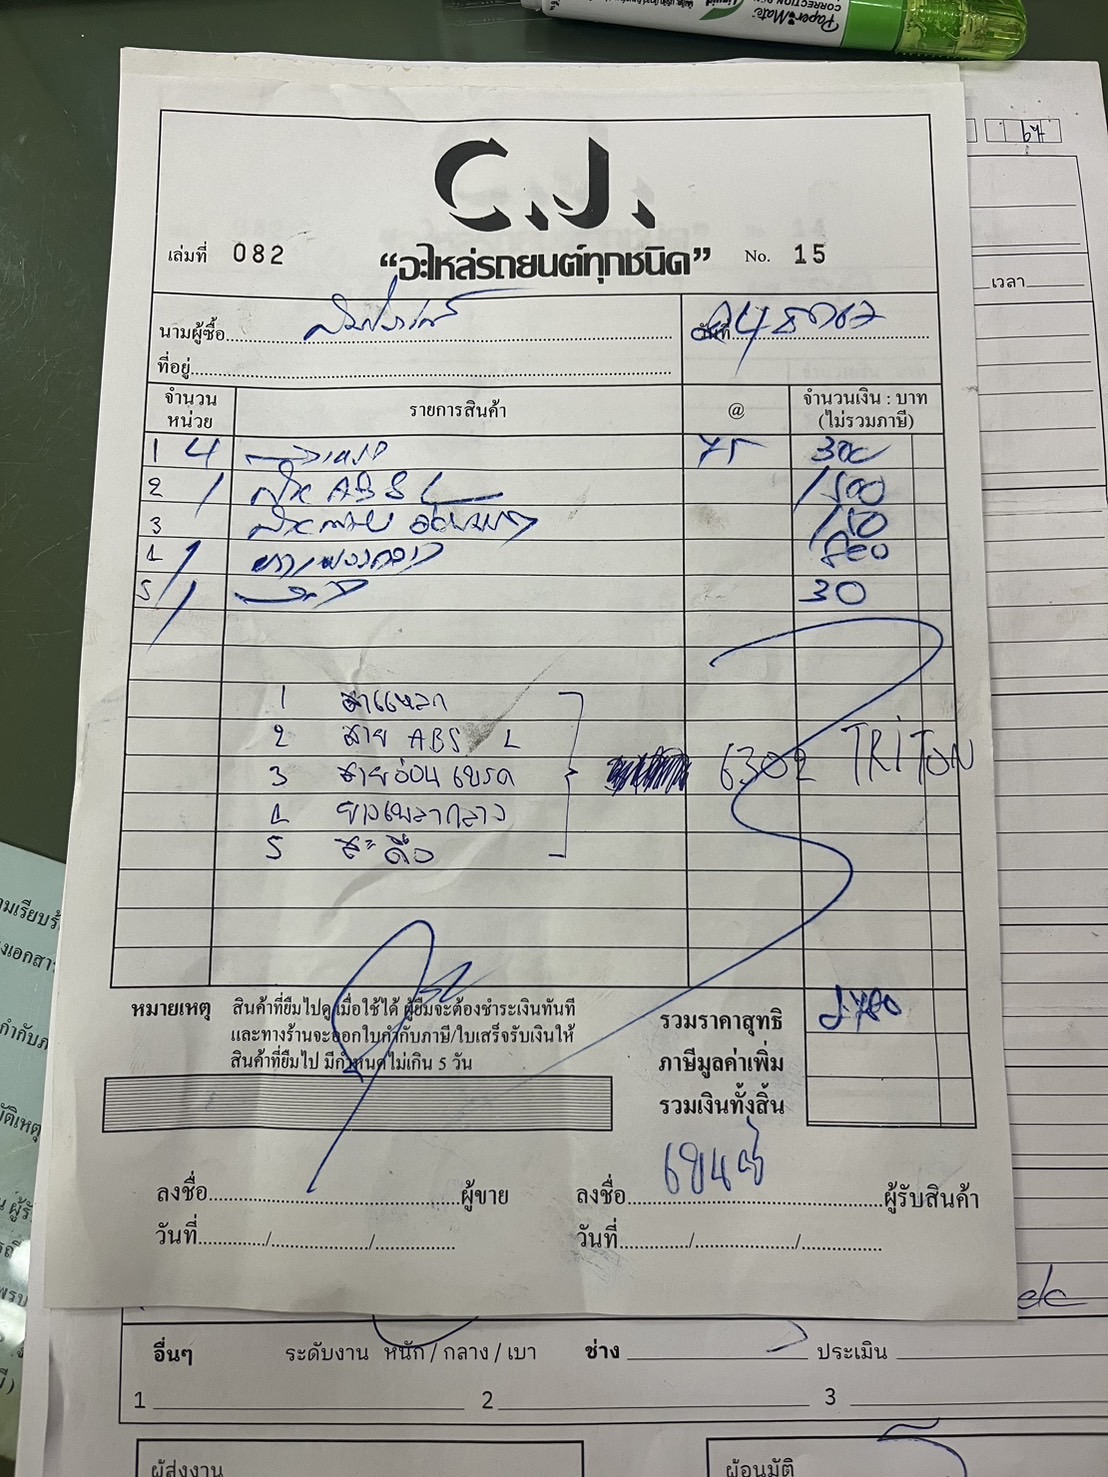 Paper Mate
CORRECTION
Liquid
67
C.J.
เล่มที่ 082 "อะไหล่รถยนต์ทุกชนิด" No. 15
เวลา
นามผู้ซื้อ วันที่ 24
ที่อยู่
จำนวนหน่วย รายการสินค้า @ จำนวนเงิน : บาท (ไม่รวมภาษี)
1 4 75 300
2 / สาย ABS L 1500
3 150
4 / ยางเพลากลาง 800
5 / 30
1 ฝาแหลก
2 สาย ABS L
3 สายอ่อนเบรค 6302 TRITON
4 ยางเพลากลาง
5 สะดือ
หมายเหตุ สินค้าที่ยืมไปดู เมื่อใช้ได้ ผู้ยืมจะต้องชำระเงินทันที
และทางร้านจะออกใบกำกับภาษี/ใบเสร็จรับเงินให้
สินค้าที่ยืมไป มีกำหนดไม่เกิน 5 วัน
รวมราคาสุทธิ 2780
ภาษีมูลค่าเพิ่ม
รวมเงินทั้งสิ้น
ลงชื่อ ผู้ขาย ลงชื่อ ผู้รับสินค้า
วันที่ / / วันที่ / /
อื่นๆ ระดับงาน หนัก / กลาง / เบา ช่าง ประเมิน
1 2 3
ผู้ส่งงาน ผู้อนุมัติ